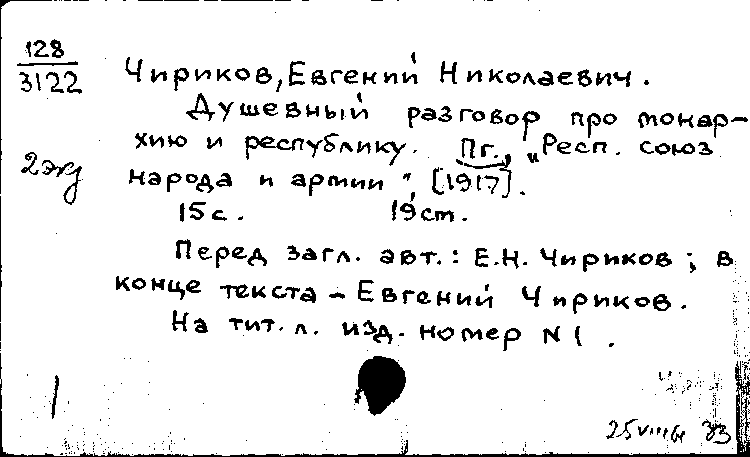 128
3122
Чириков, Евгений Николаевич.
Душевный разговор про монар-
хию и республику. Пг., „Респ. союз
2экз
народа и армии", [1917].
15с. 19см.
Перед загл. авт.: Е.Н. Чириков; в
конце текста – Евгений Чириков.
На тит. л. изд. номер N 1.